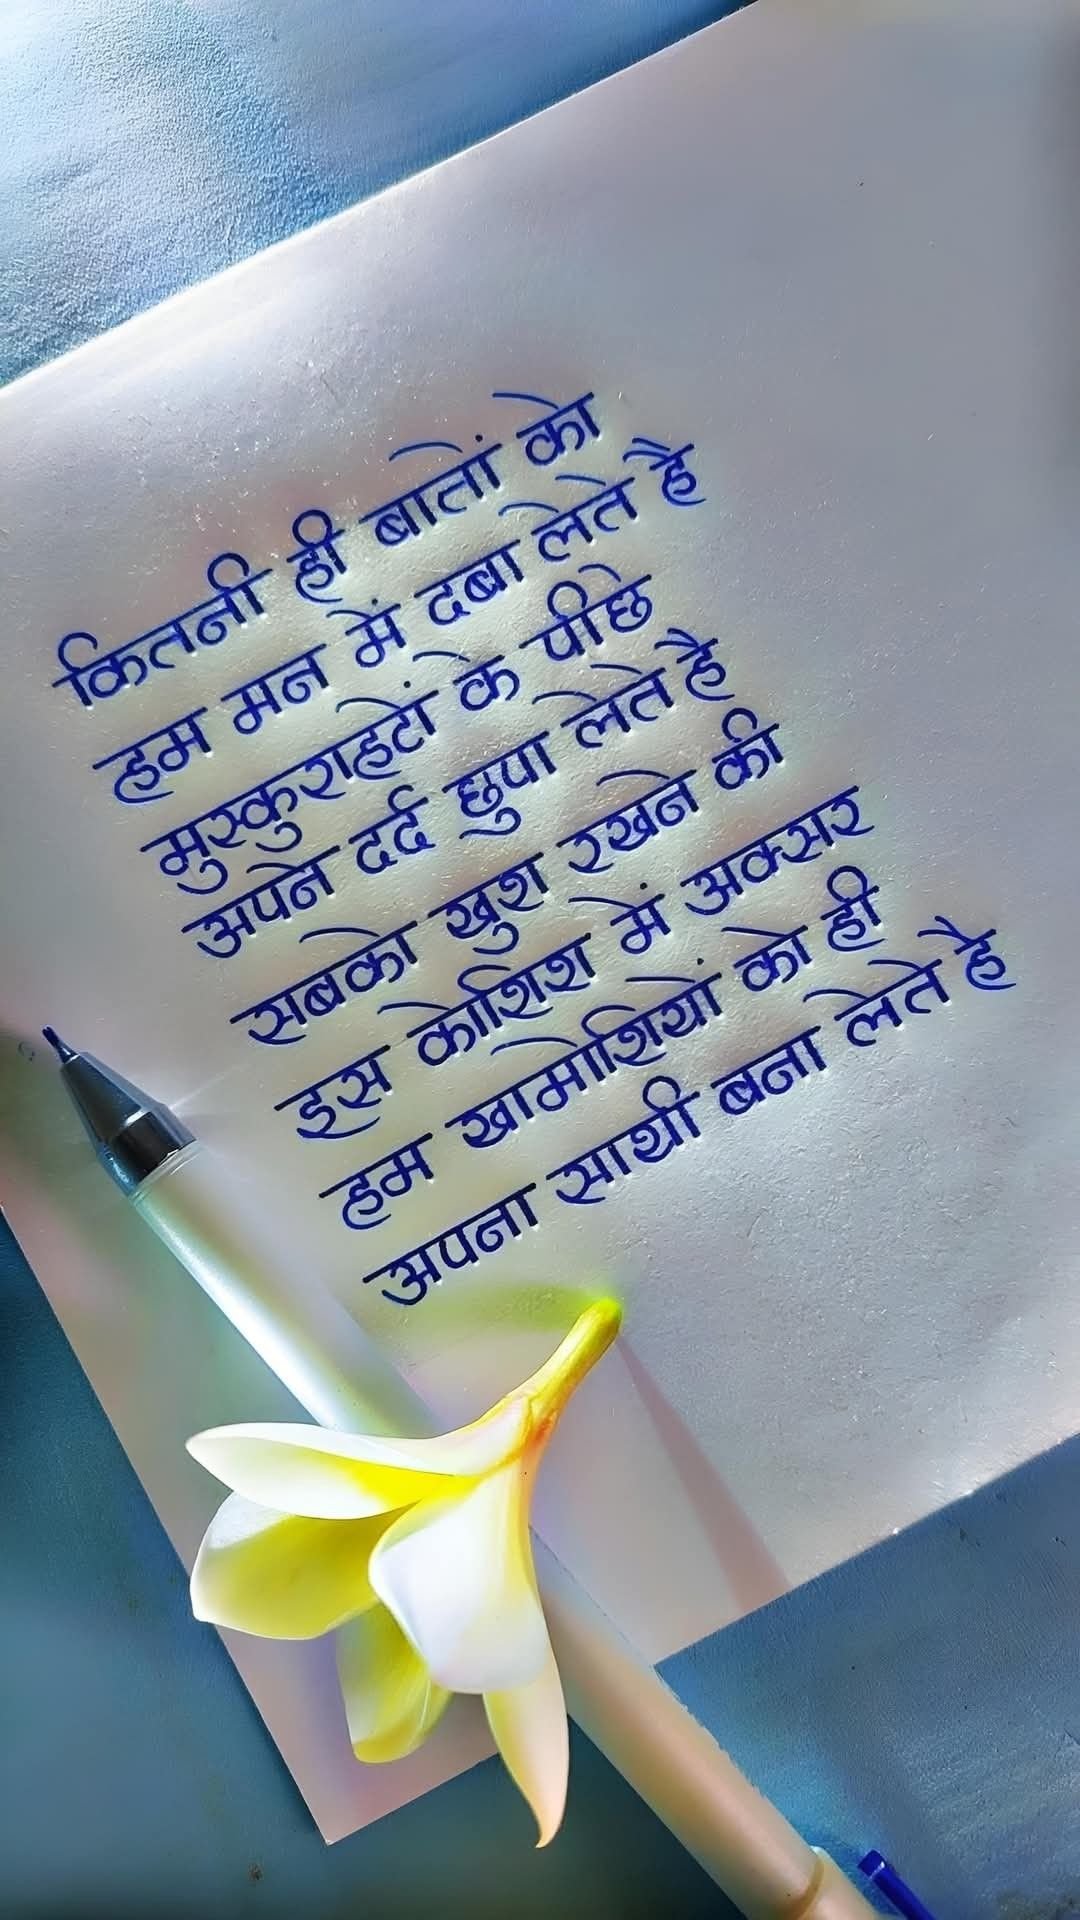 कितनी ही बातों को
हम मन में दबा लेते है
मुस्कुराहटों के पीछे
अपने दर्द छुपा लेते है
सबको खुश रखने की
इस कोशिश में अक्सर
हम खामोशियों को ही
अपना साथी बना लेते है